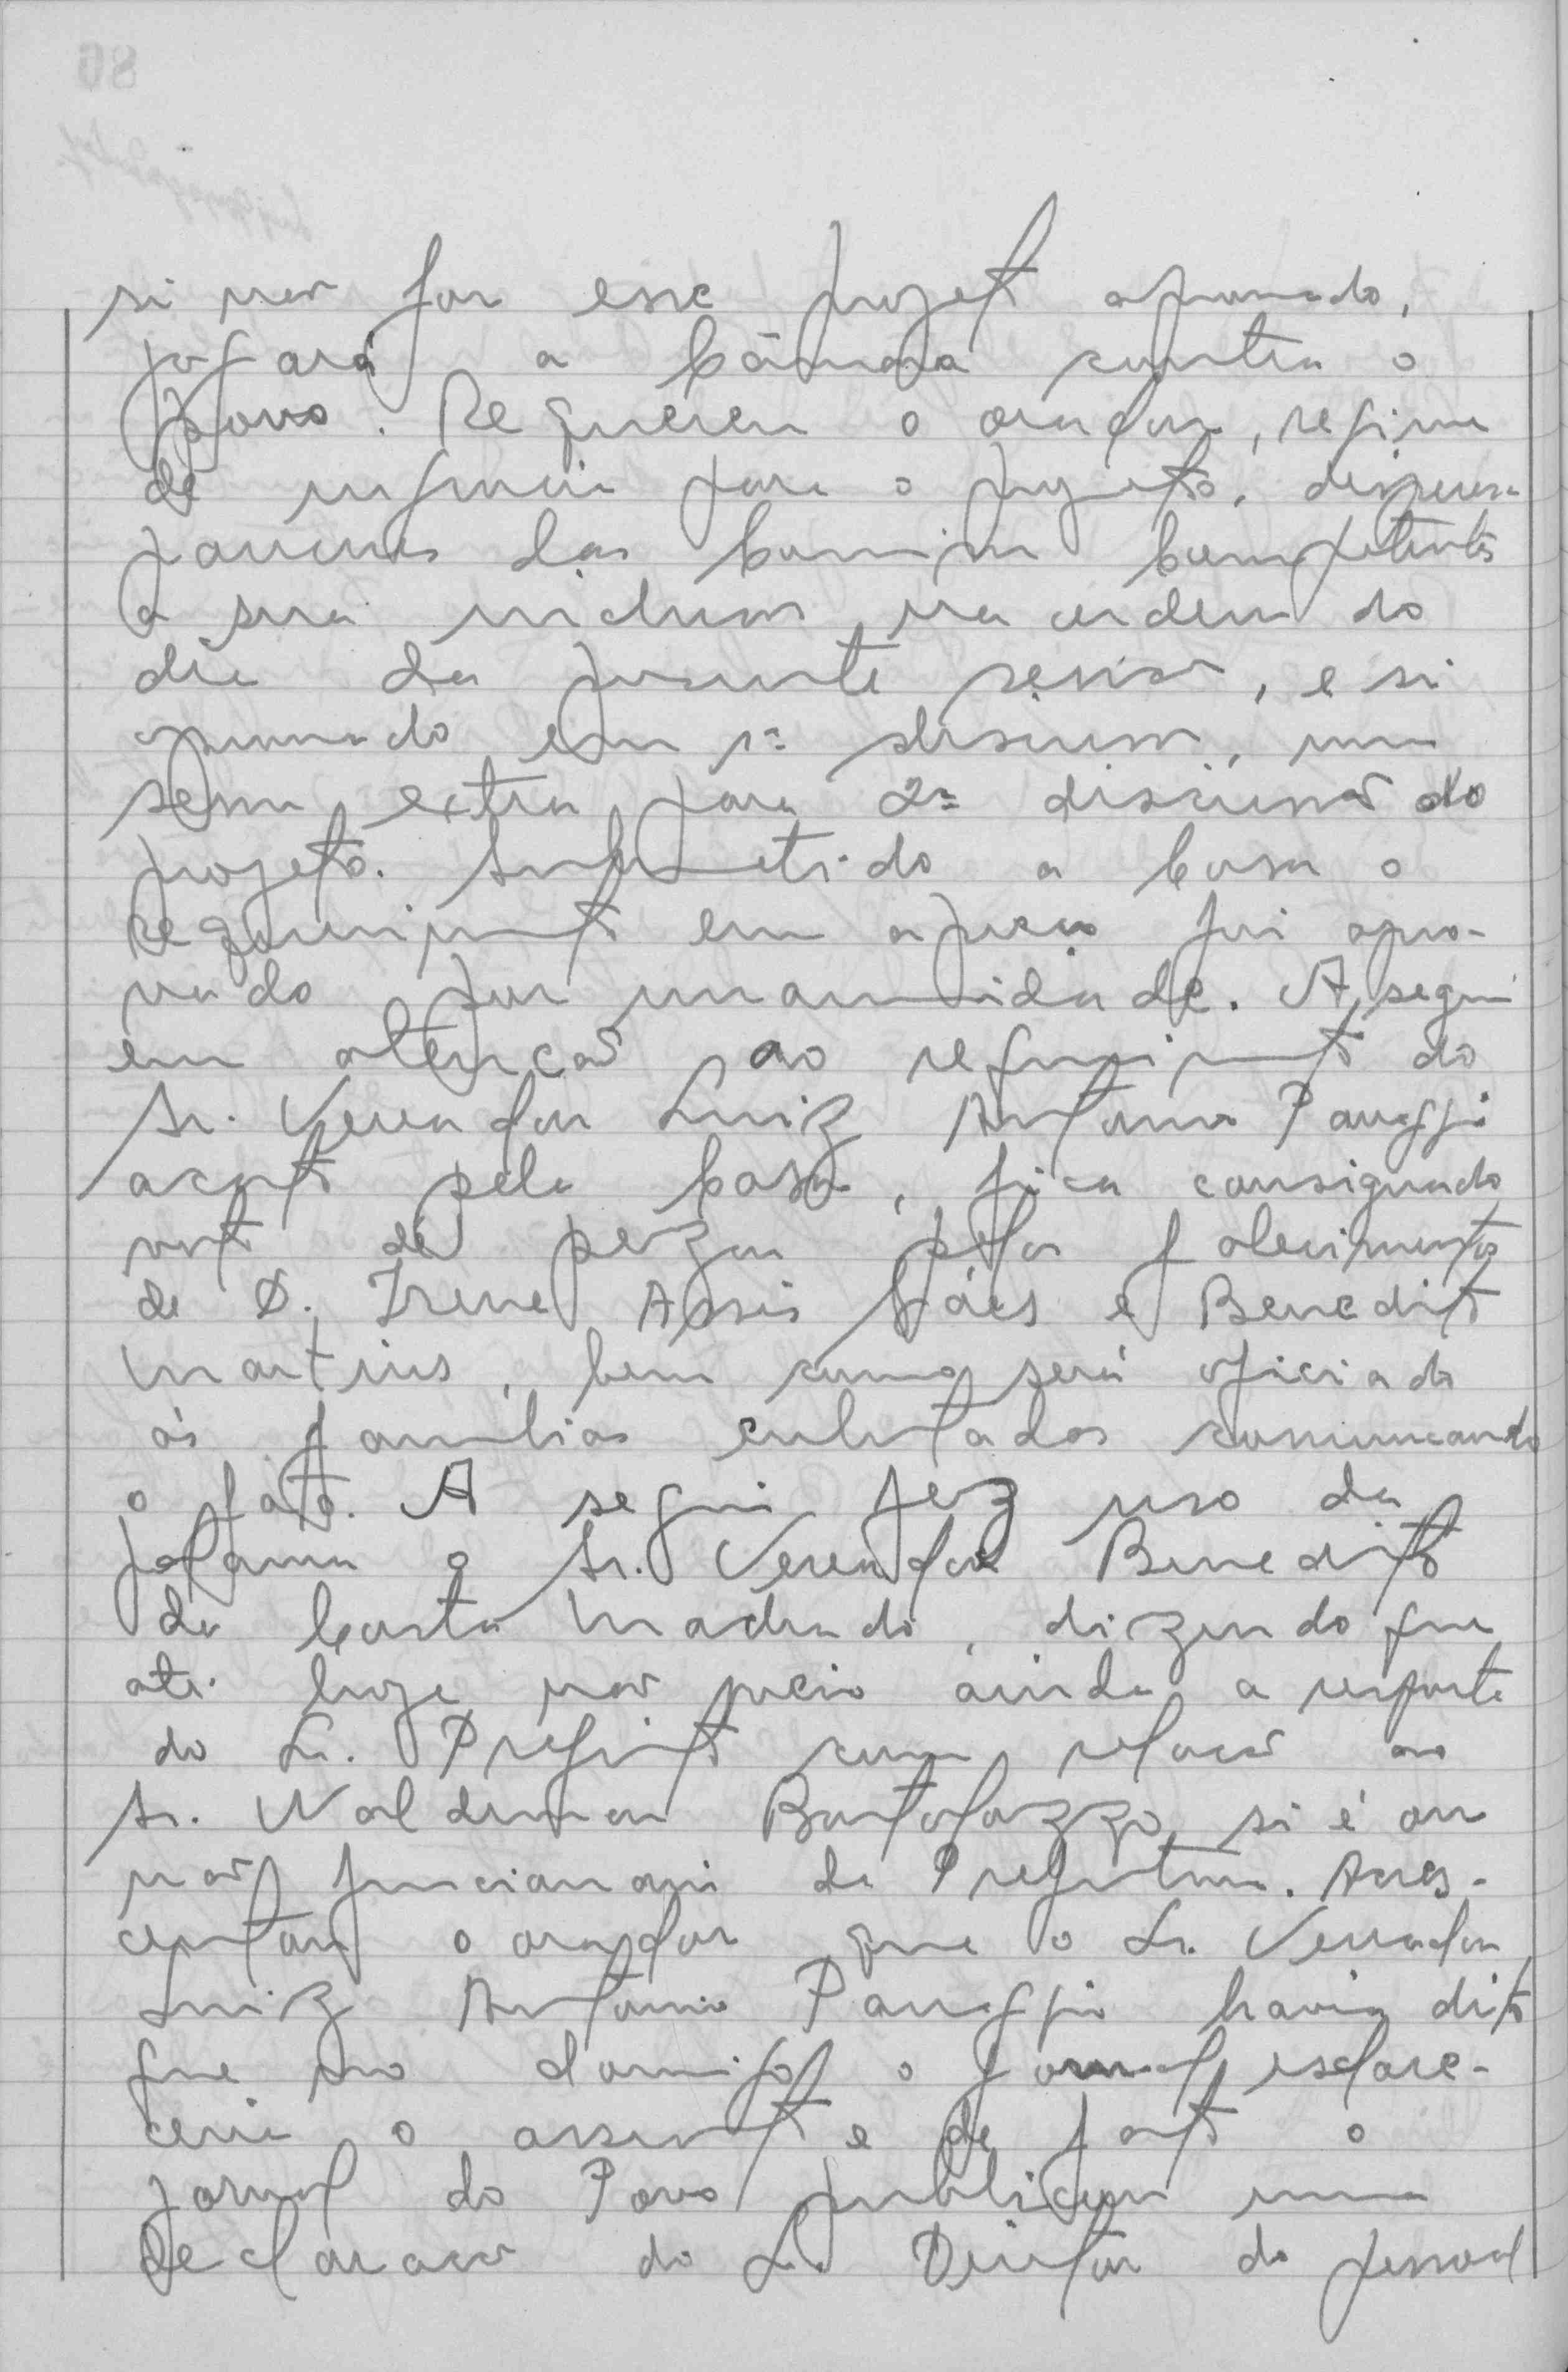 si não for esse projeto aprovado,
jogará a Câmara contra o
povo. Requereu o orador, regime
de urgência para o projeto, dispensa
pareceres das Comissões Competentes
a sua inclusão na ordem do
dia da presente sessão, e si
aprovado em 1ª discussão, uma
sessão extra para 2ª discussão do
projeto. Submetido a Casa o
requerimento em apreço foi apro-
vado por unanimidade. A seguir
em atenção ao requerimento do
Sr. Vereador Luiz Antonio Panggio
aceito pela Casa, fica consignado
voto de pezar pelos falecimentos
de D. Irene Assis Góes e Benedito
Martins, bem como será oficiado
ás familias enlutadas comunicando
o fato. A seguir fez uso da
palavra o Sr. Vereador Benedito
da Costa Machado, dizendo que
até hoje não veio ainda a resposta
do Sr. Prefeito com relação ao
Sr. Waldemar Bortolazzo, si é ou
não funcionario da Prefeitura. Acres-
centou o orador que o Sr. Vereador
Luiz Antonio Panggio havia dito
que no domingo o jornal esclare-
ceria o assunto e de fato o
jornal do Povo publicou uma
declaração do Sr. Diretor do pessoal